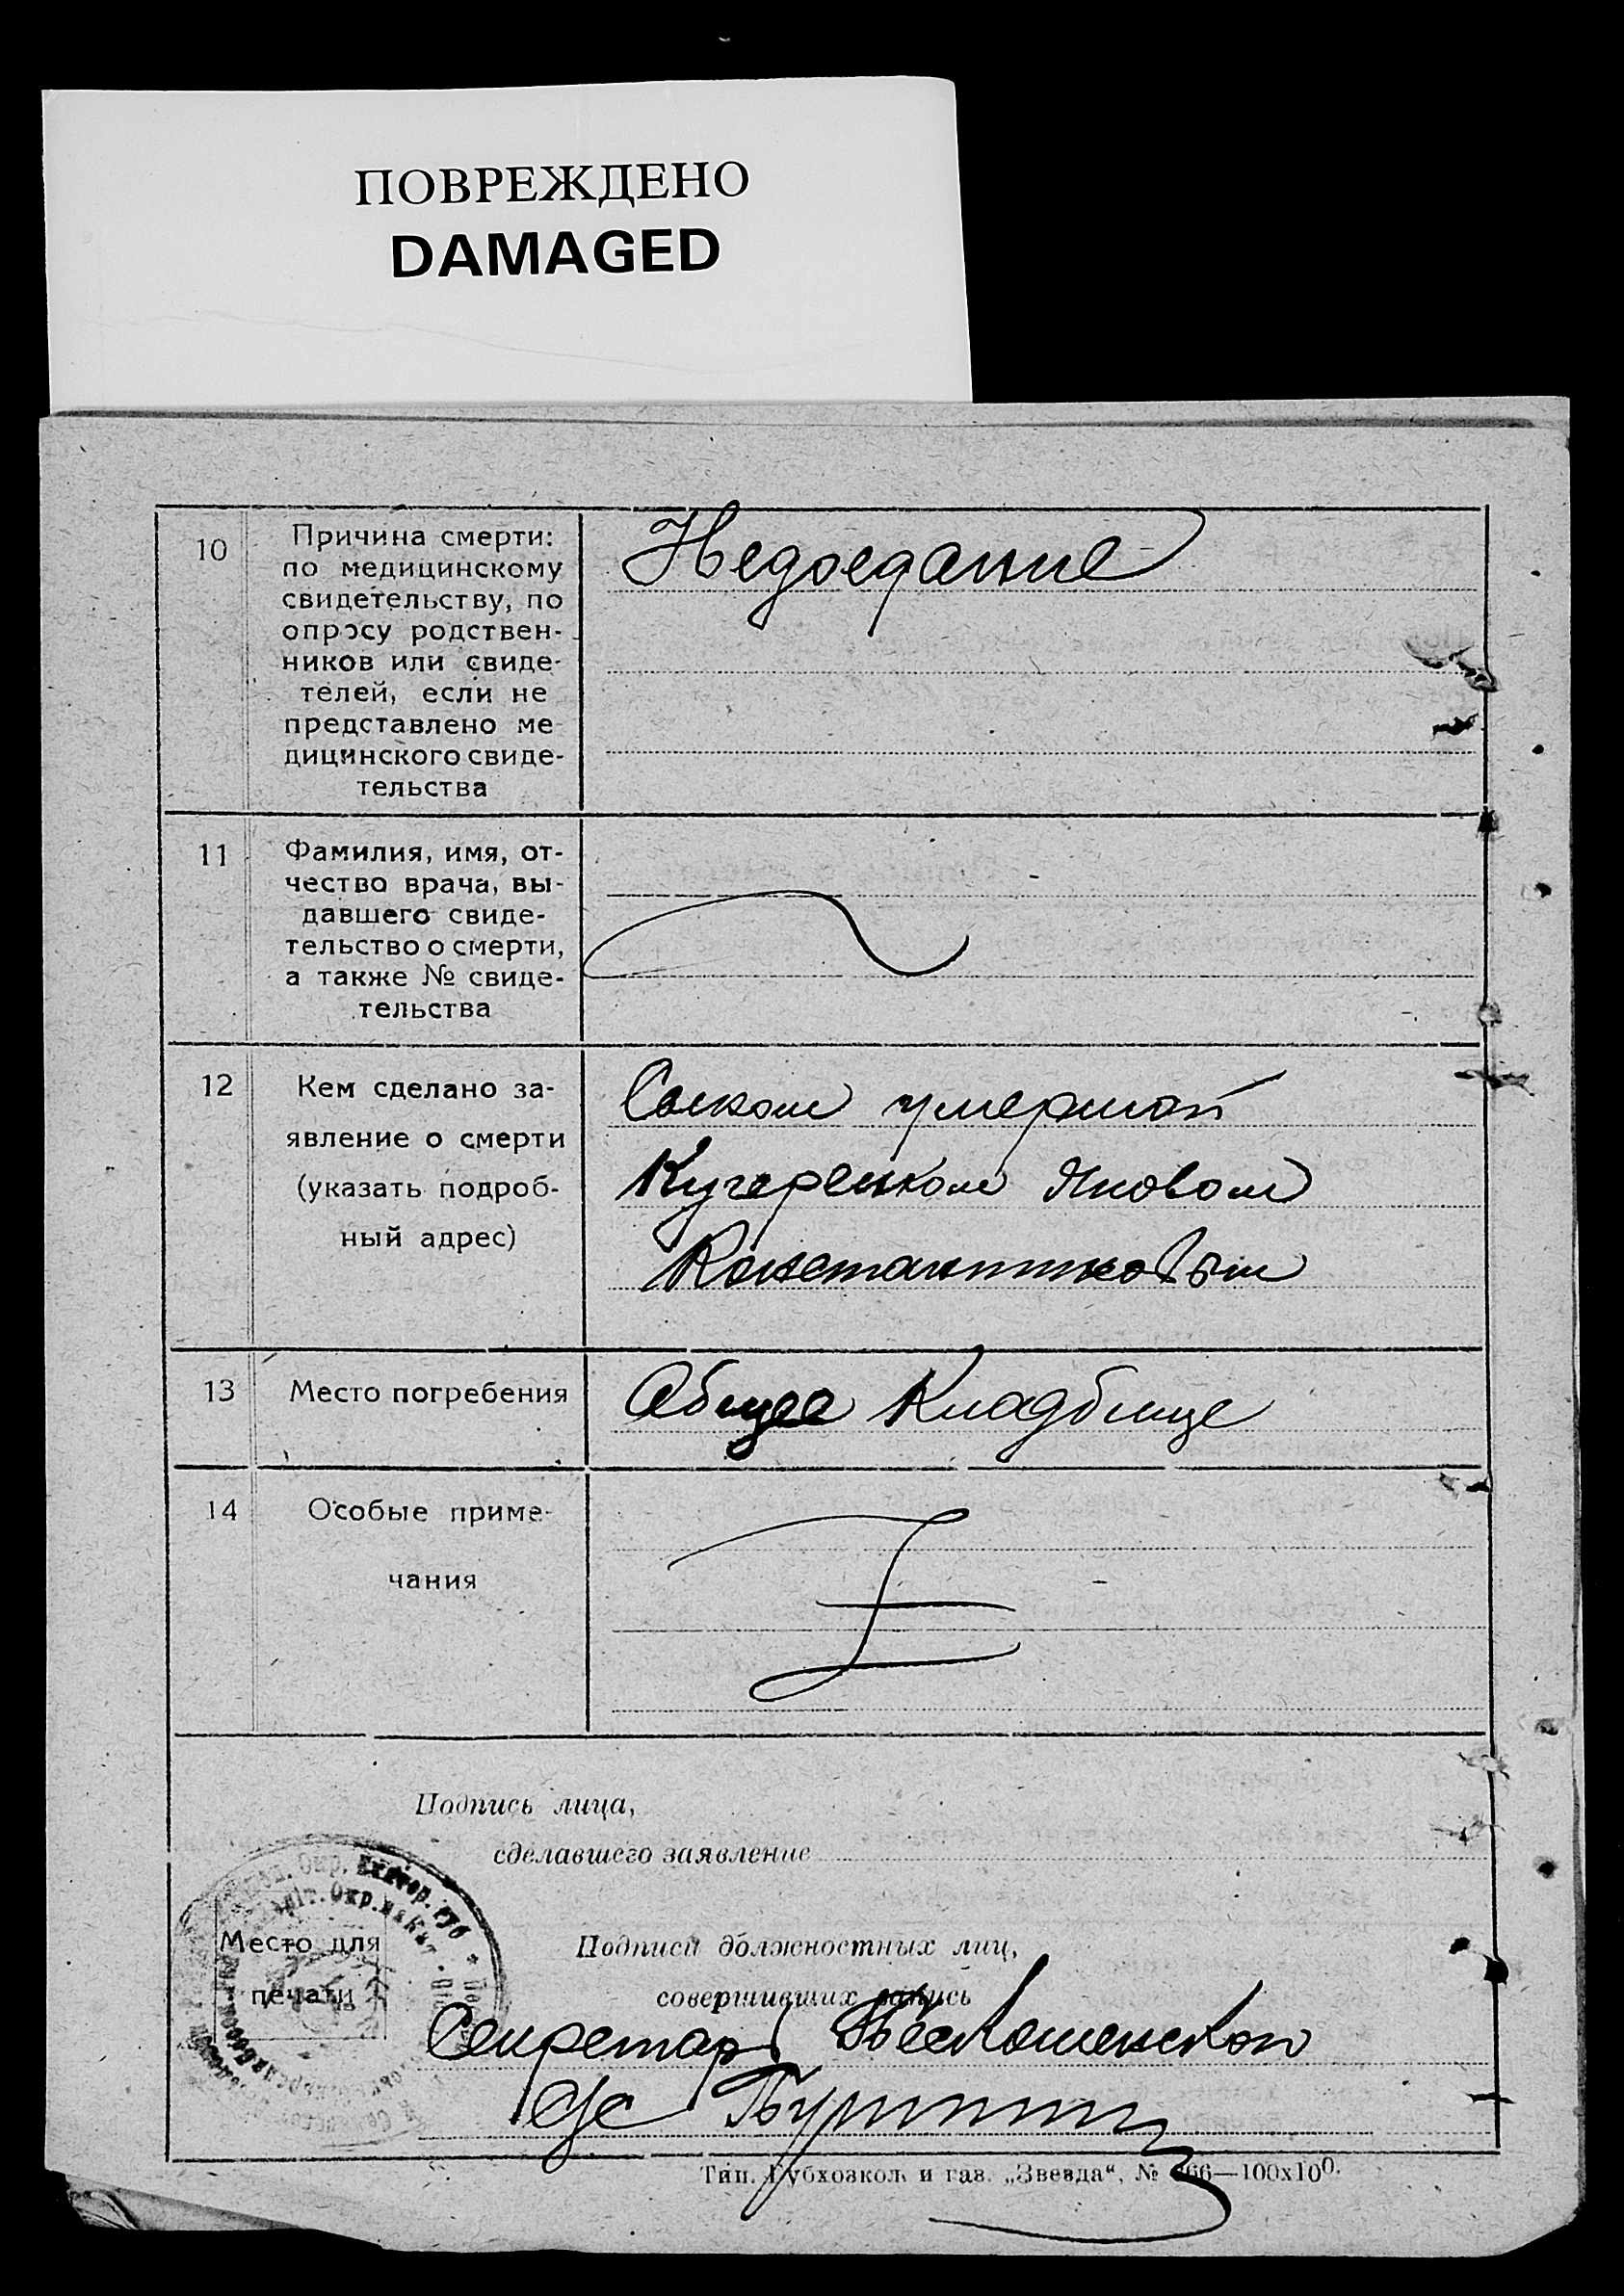 ПОВРЕЖДЕНО
DAMAGED
10
Причина смерти:
по медицинскому
свидетельству, по
опросу родствен-
ников или свиде-
телей, если не
представлено ме
дицинского свиде-
тельства
Недоедание
11
Фамилия, имя, от-
чество врача, вы-
давшего свиде-
тельство о смерти,
а также № свиде-
тельства
12
Кем сделано за-
явление о смерти
(указать подроб-
ный адрес)
Сыном умершой
Кучеренком Яковом
Константиновым
13
Место погребения
Общее Кладбище
14
Особые приме-
чания
Подпись лица,
сделавшего заявление
Место для
печати
Подписи должностных лиц,
совершивших запись
Секретарь
Тип. Губхозкол. и газ. „Звезда“, № 66—100х100.